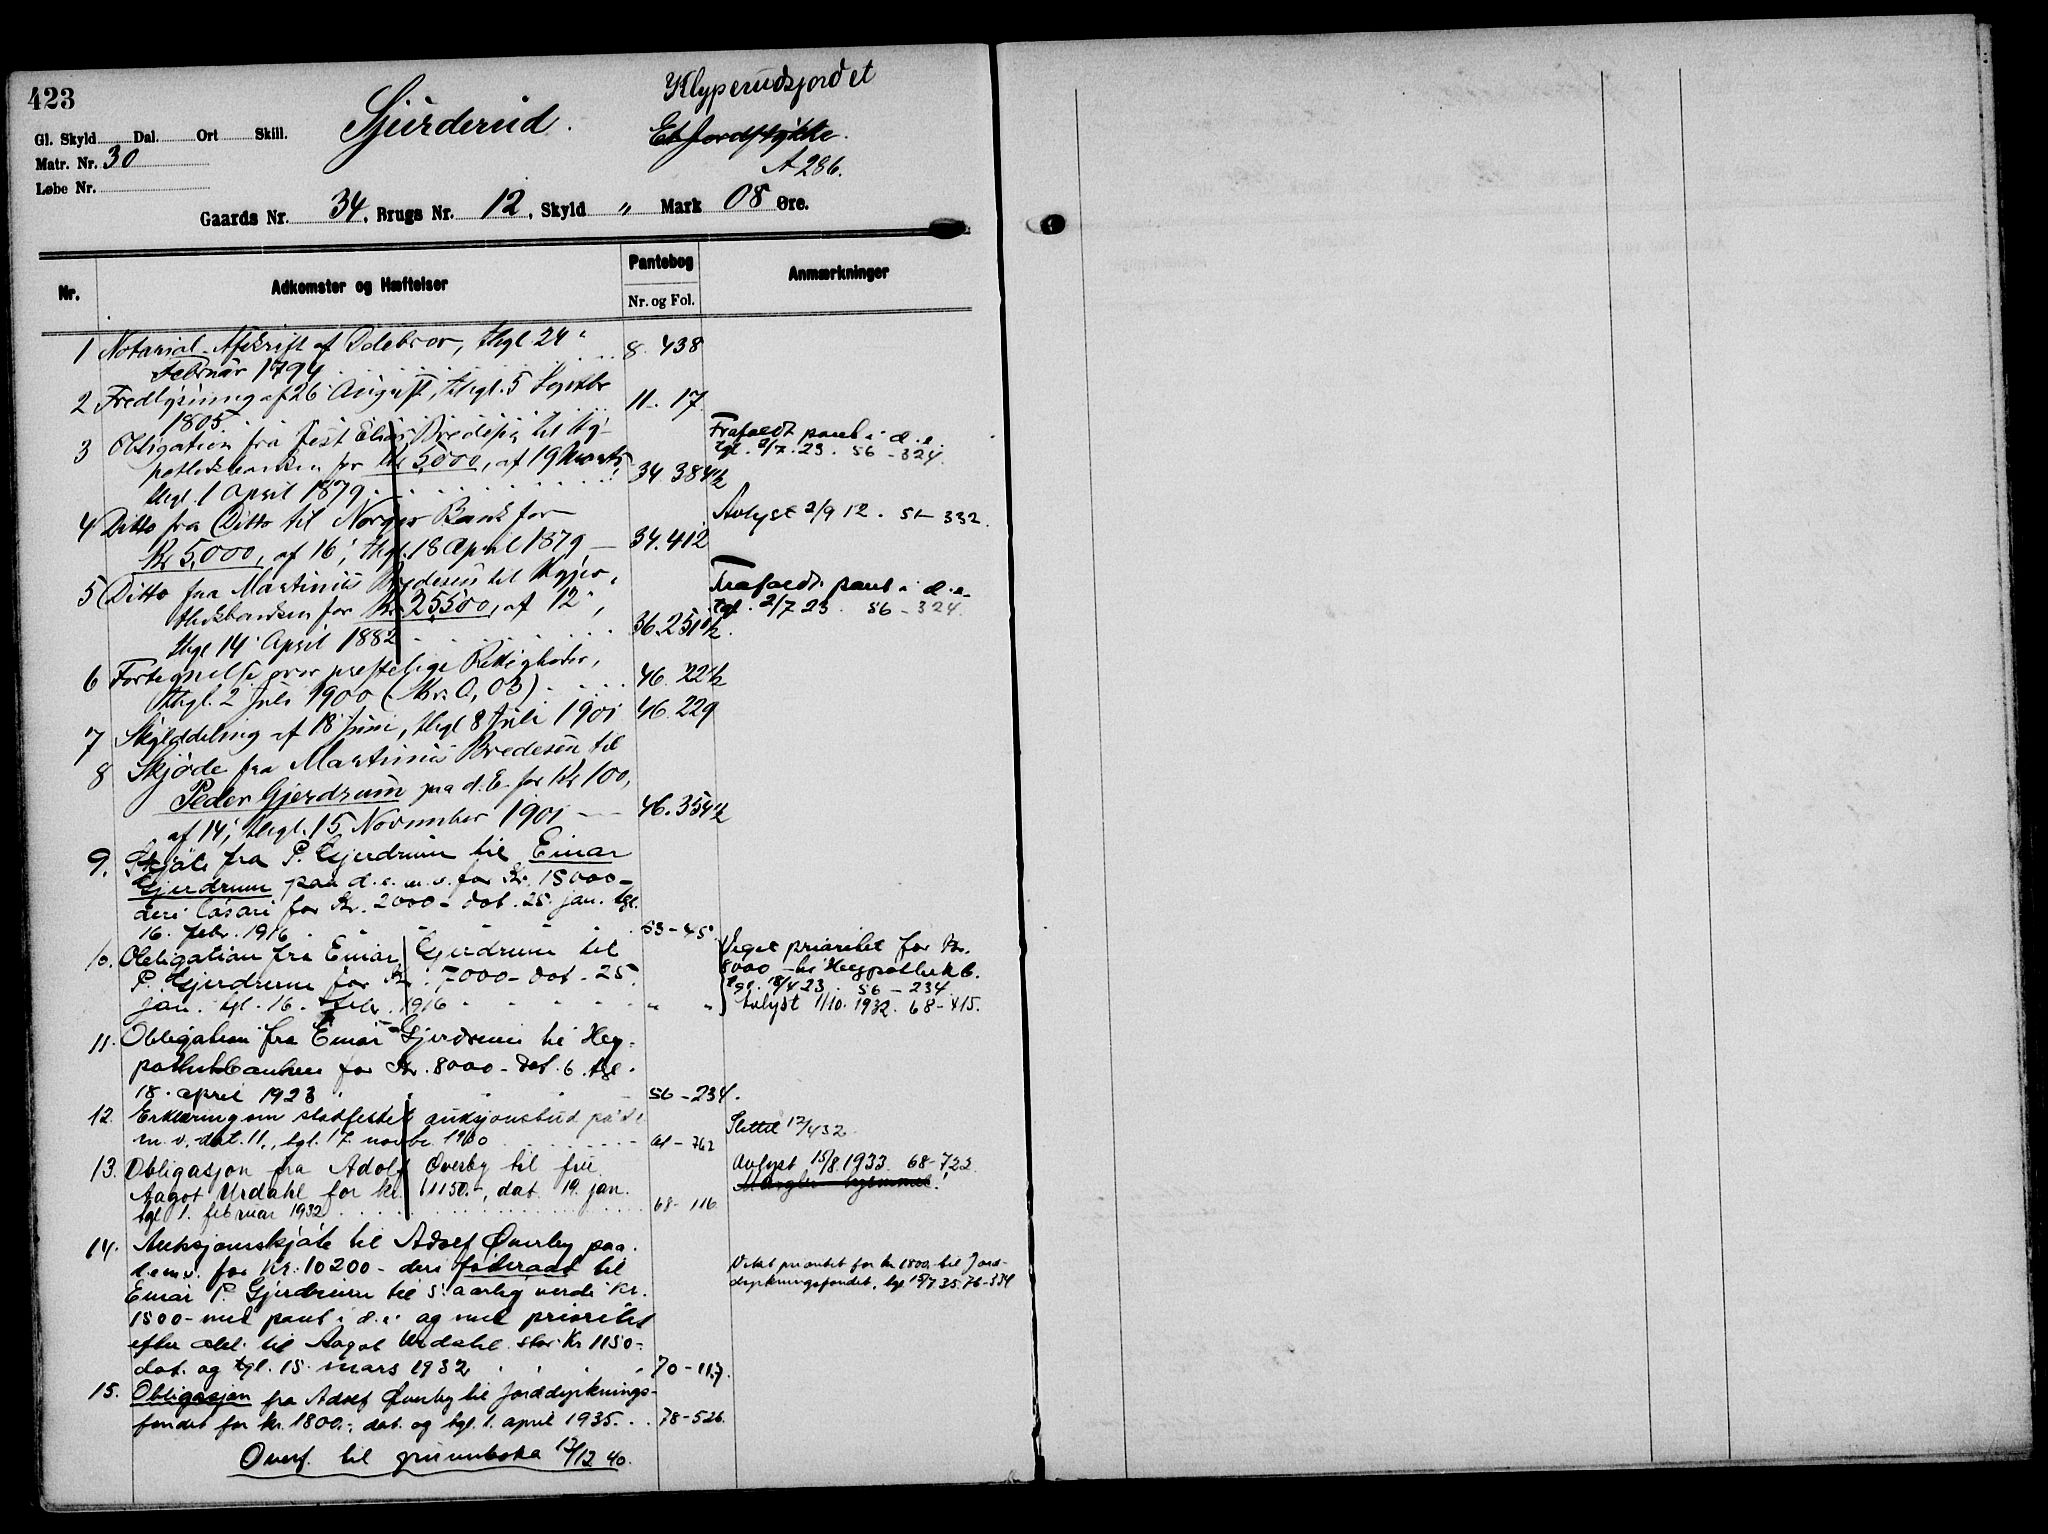 423
Klyperudsjordet
Sjurderud.
Et Jordstykke.
A 286.
Gl. Skyld Dal. Ort Skill.
Matr. Nr. 30
Løbe Nr.
Gaards Nr. 34, Brugs Nr. 12, Skyld " Mark 08 Øre.
Nr. Adkomster og Hæftelser Pantebog Nr. og Fol. Anmærkninger
1 Notarial-Afskrift af Odelsbrev, thgl. 24
Februar 1794 8. 438
2 Fredlysning af 26 August, thgl. 5 Septbr
1805 11. 17
3 Obligation fra Jest Bredesen til Hy-
pothekbanken for Kr 5,000, af 19 Marts,
thgl. 1 April 1879 34. 384 1/2
Frafaldt pant i d.e.
tgl. 2/7.23. 56-324.
4 Ditto fra Ditto til Norges Bank for
Kr 5,000, af 16, thgl. 18 April 1879 34. 412
Avlyst 2/9 12. 51-332.
5 Ditto fra Martinus Bredesen til Hypo-
thekbanken for Kr. 25500, af 12,
thgl 14 April 1882 36. 251 1/2
Frafaldt pant i d.e.
tgl. 2/7 23. 56-324.
6 Fortegnelse over præstelige Rettigheder,
thgl. 2 Juli 1900 (Kr. 0,03) 46. 22 1/2
7 Skylddeling af 18 Juni, thgl 8 Juli 1901 46. 229
8 Skjøde fra Martinus Bredesen til
Peder Gjerdrum paa d. E. for Kr 100,
af 14, thgl. 15 November 1901 46. 354 1/2
9. Skjøte fra P. Gjerdrum til Einar
Gjerdrum paa d.e.m.v. for Kr. 15000-
deri løsøre for Kr. 2000- dat. 25 jan. tgl.
16. febr. 1916 53-45
10. Obligation fra Einar Gjerdrum til
P. Gjerdrum for Kr. 7000- dat. 25
jan. tgl. 16. febr. 1916 " "
Veget prioritet for Kr.
8000 - til Hypothekb.
tgl. 18/4 23. 56-234
Avlyst 1/10. 1932. 68-415.
11. Obligation fra Einar Gjerdrum til Hy-
pothekbanken for Kr. 8000- dat. 6. tgl.
18. april 1923 56-234.
12. Erklæring om stadfestet auksjonsbud på d e
m.v. dat. 11., tgl. 17. novbr. 1930 61-762
Slettet 12/4 32
13. Obligasjon fra Adolf Øverby til fru
Aagot Urdahl for kr. 11150.-, dat. 19. jan.
tgl 1. februar 1932 68-116
Avlyst 15/8.1933. 68-722
14. Auksjonsskjøte til Adolf Øverby paa
d.e m.v. for Kr. 10200- deri føderaad til
Einar P. Gjerdrum til 5 aarlig verdi Kr.
1500- med pant i d.e. og med prioritet
efter obl. til Aagot Urdahl stor Kr 1150-
dat. og tgl. 15. mars 1932 70-117.
Veket prioritet for kr 1800,- til Jord-
dyrkningsfondet, tgl 15/7 35. 76-334
15. Obligasjon fra Adolf Øverby til Jorddyrknings-
fondet for kr. 1800.-, dat. og tgl. 1. april 1935. 78-526.
Overf. til grunnboka 12/12 40.